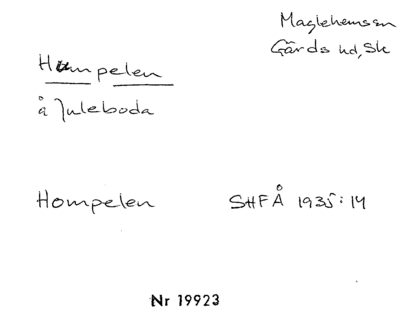 Maglehems sn
Gärds hd, Sk
Humpelen
å Juleboda
Hompelen SHFÅ 1935:14
Nr 19923